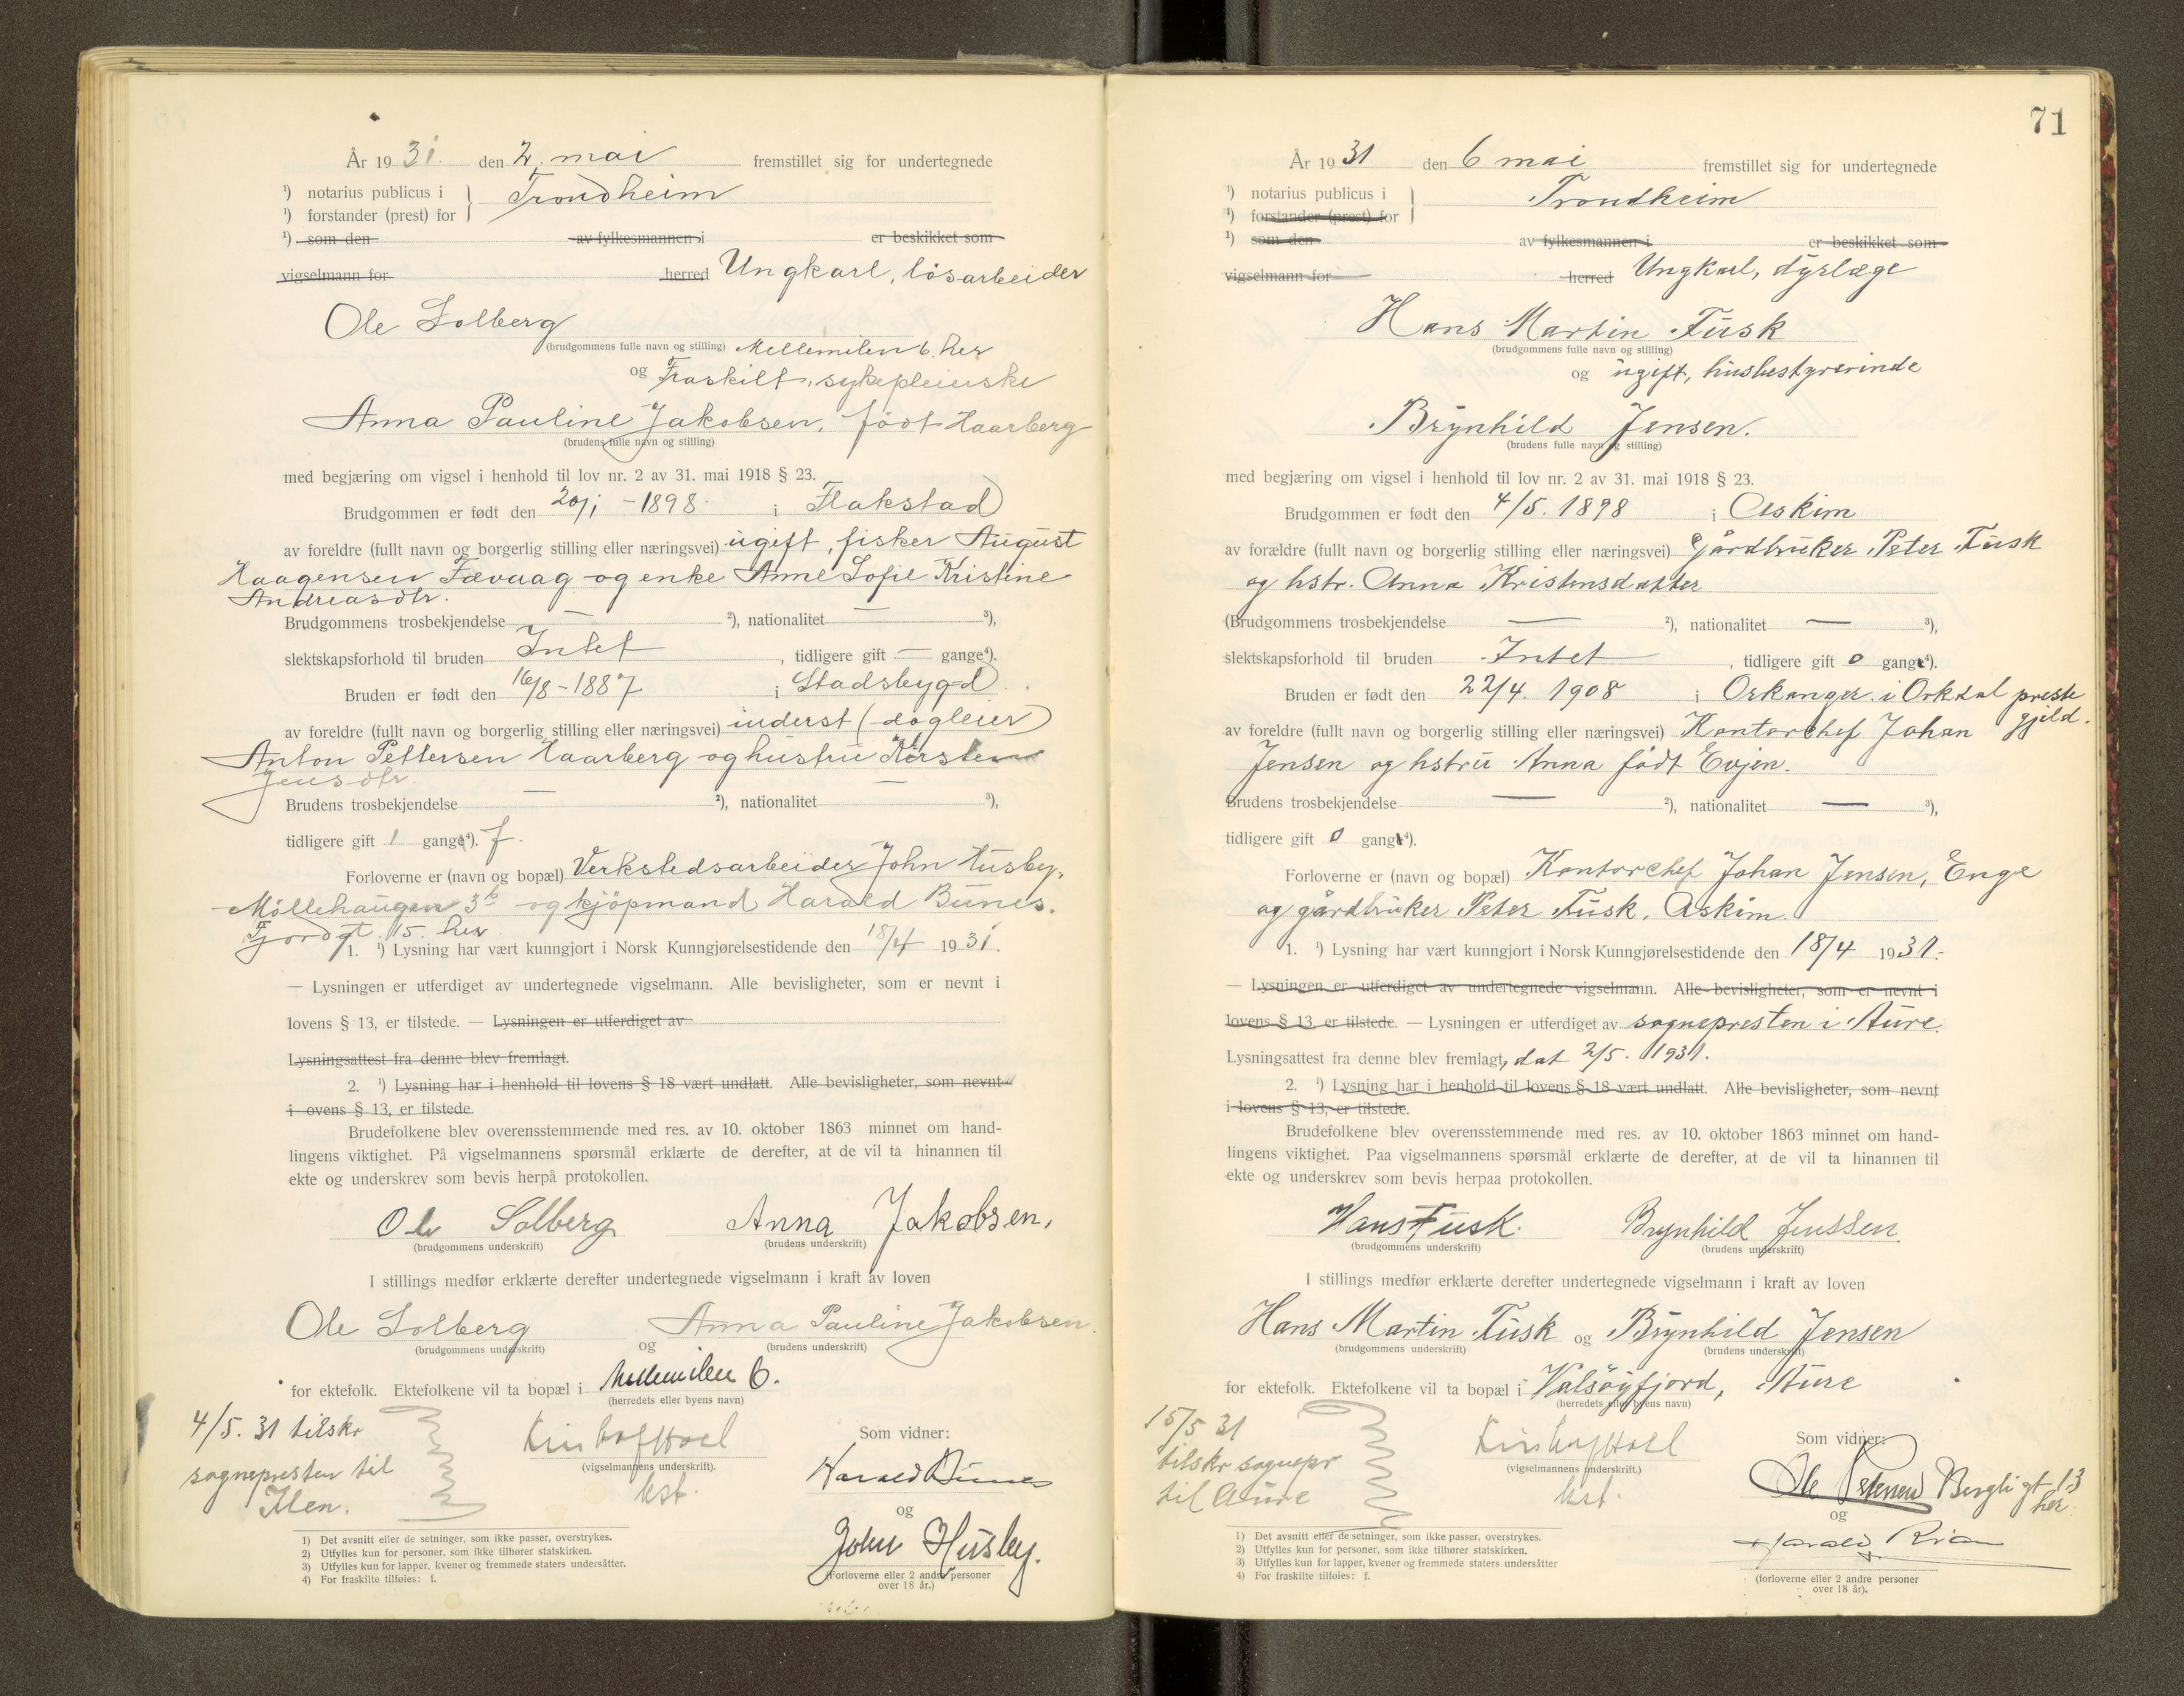 År 1931. den 2. mai fremstillet sig for undertegnede
¹) notarius publicus i } Trondheim
¹) forstander (prest) for
¹) som den av fylkesmannen i er beskikket som
vigselmann for herred Ungkarl, løsarbeider
Ole Solberg
(brudgommens fulle navn og stilling) Mellemilen 6. her
og Fraskilt, sykepleierske
Anna Pauline Jakobsen, født Haarberg
(brudens fulle navn og stilling)
med begjæring om vigsel i henhold til lov nr. 2 av 31. mai 1918 § 23.
Brudgommen er født den 20/1 - 1898. i Flakstad
av foreldre (fullt navn og borgerlig stilling eller næringsvei) ugift, fisker August
Haagensen Fævaag og enke Anne Sofie Kristine
Andreasdtr.
Brudgommens trosbekjendelse — ²), nationalitet — ³),
slektskapsforhold til bruden Intet, tidligere gift — gange⁴).
Bruden er født den 16/8 - 1887 i Stadsbygd
av foreldre (fullt navn og borgerlig stilling eller næringsvei) inderst (dagleier)
Anton Pettersen Haarberg og hustru Kirsten
Jensdtr.
Brudens trosbekjendelse — ²), nationalitet — ³),
tidligere gift 1 gange⁴). f.
Forloverne er (navn og bopæl) Verkstedsarbeider John Husby,
Möllehaugen 3b og kjöpmand Harald Bunes.
Fjordgt. 15. her
1. ¹) Lysning har vært kunngjort i Norsk Kunngjørelsestidende den 18/4 1931.
— Lysningen er utferdiget av undertegnede vigselmann. Alle bevisligheter, som er nevnt i
lovens § 13, er tilstede. — Lysningen er utferdiget av
Lysningsattest fra denne blev fremlagt.
2. ¹) Lysning har i henhold til lovens § 18 vært undlatt. Alle bevisligheter, som nevnt
i ovens § 13, er tilstede.
Brudefolkene blev overensstemmende med res. av 10. oktober 1863 minnet om hand-
lingens viktighet. På vigselmannens spørsmål erklærte de derefter, at de vil ta hinannen til
ekte og underskrev som bevis herpå protokollen.
Ole Solberg Anna Jakobsen,
(brudgommens underskrift) (brudens underskrift)
I stillings medfør erklærte derefter undertegnede vigselmann i kraft av loven
Ole Solberg og Anna Pauline Jakobsen.
(brudgommens underskrift) (brudens underskrift)
for ektefolk. Ektefolkene vil ta bopæl i Mellemilen 6.
(herredets eller byens navn)
4/5. 31 tilskr
sognepresten til
Ilen.
(vigselmannens underskrift).
kst.
Som vidner:
Harald Bunes
og
John Husby.
(Forloverne eller 2 andre personer
over 18 år.)
1) Det avsnitt eller de setninger, som ikke passer, overstrykes.
2) Utfylles kun for personer, som ikke tilhører statskirken.
3) Utfylles kun for lapper, kvener og fremmede staters undersåtter.
4) For fraskilte tilføies: f.
71
År 1931 den 6 mai fremstillet sig for undertegnede
¹) notarius publicus i } Trondheim
¹) forstander (prest) for
¹) som den av fylkesmannen i er beskikket som
vigselmann for herred Ungkarl, dyrlæge
Hans Martin Fusk
(brudgommens fulle navn og stilling)
og ugift, husbestyrerinde
Brynhild Jensen.
(brudens fulle navn og stilling)
med begjæring om vigsel i henhold til lov nr. 2 av 31. mai 1918 § 23.
Brudgommen er født den 4/5. 1898 i Askim
av forældre (fullt navn og borgerlig stilling eller næringsvei) Gårdbruker Peter Fusk
og hstr. Anna Kristensdatter
(Brudgommens trosbekjendelse — ²), nationalitet — ³),
slektskapsforhold til bruden Intet, tidligere gift 0 gange⁴).
Bruden er født den 22/4. 1908 i Orkanger i Orkdal preste
gjeld.
av foreldre (fullt navn og borgerlig stilling eller næringsvei) Kontorchef Johan
Jensen og hstru Anna født Evjen.
Brudens trosbekjendelse — ²), nationalitet — ³),
tidligere gift 0 gange⁴).
Forloverne er (navn og bopæl) Kontorchef Johan Jensen, Enge
og gårdbruker Peter Fusk, Askim.
1. ¹) Lysning har vært kunngjort i Norsk Kunngjørelsestidende den 18/4 1931.
— Lysningen er utferdiget av undertegnede vigselmann. Alle bevisligheter, som er nevnt i
lovens § 13 er tilstede. — Lysningen er utferdiget av sognepresten i Aure.
Lysningsattest fra denne blev fremlagt, dat 2/5. 1931.
2. ¹) Lysning har i henhold til lovens § 18 vært undlatt. Alle bevisligheter, som nevnt
i lovens § 13, er tilstede.
Brudefolkene blev overensstemmende med res. av 10. oktober 1863 minnet om hand-
lingens viktighet. Paa vigselmannens spørsmål erklærte de derefter, at de vil ta hinannen til
ekte og underskrev som bevis herpaa protokollen.
Hans Fusk. Brynhild Jenssen.
(brudgommens underskrift) (brudens underskrift)
I stillings medfør erklærte derefter undertegnede vigselmann i kraft av loven
Hans Martin Fusk og Brynhild Jensen
(brudgommens underskrift) (brudens underskrift)
for ektefolk. Ektefolkene vil ta bopæl i Valsöyfjord, Aure
(herredets eller byens navn)
15/5 31
tilskr sognepr
til Aure
(vigselmannens underskrift.)
kst.
Som vidner:
Ole Petersen Bergligt 13
her.
og
Harald Rian
(forloverne eller 2 andre personer
over 18 år).
1) Det avsnitt eller de setninger, som ikke passer, overstrykes.
2) Utfylles kun for personer, som ikke tilhører statskirken.
3) Utfylles kun for lapper, kvener og fremmede staters undersåtter
4) For fraskilte tilføies: f.